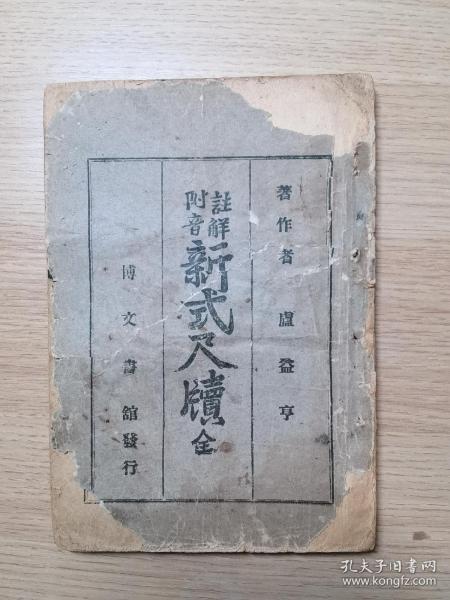 著作者 盧益亨
註解
附音
新式尺牘全
博文書館發行
孔夫子旧书网
www.kongfz.com